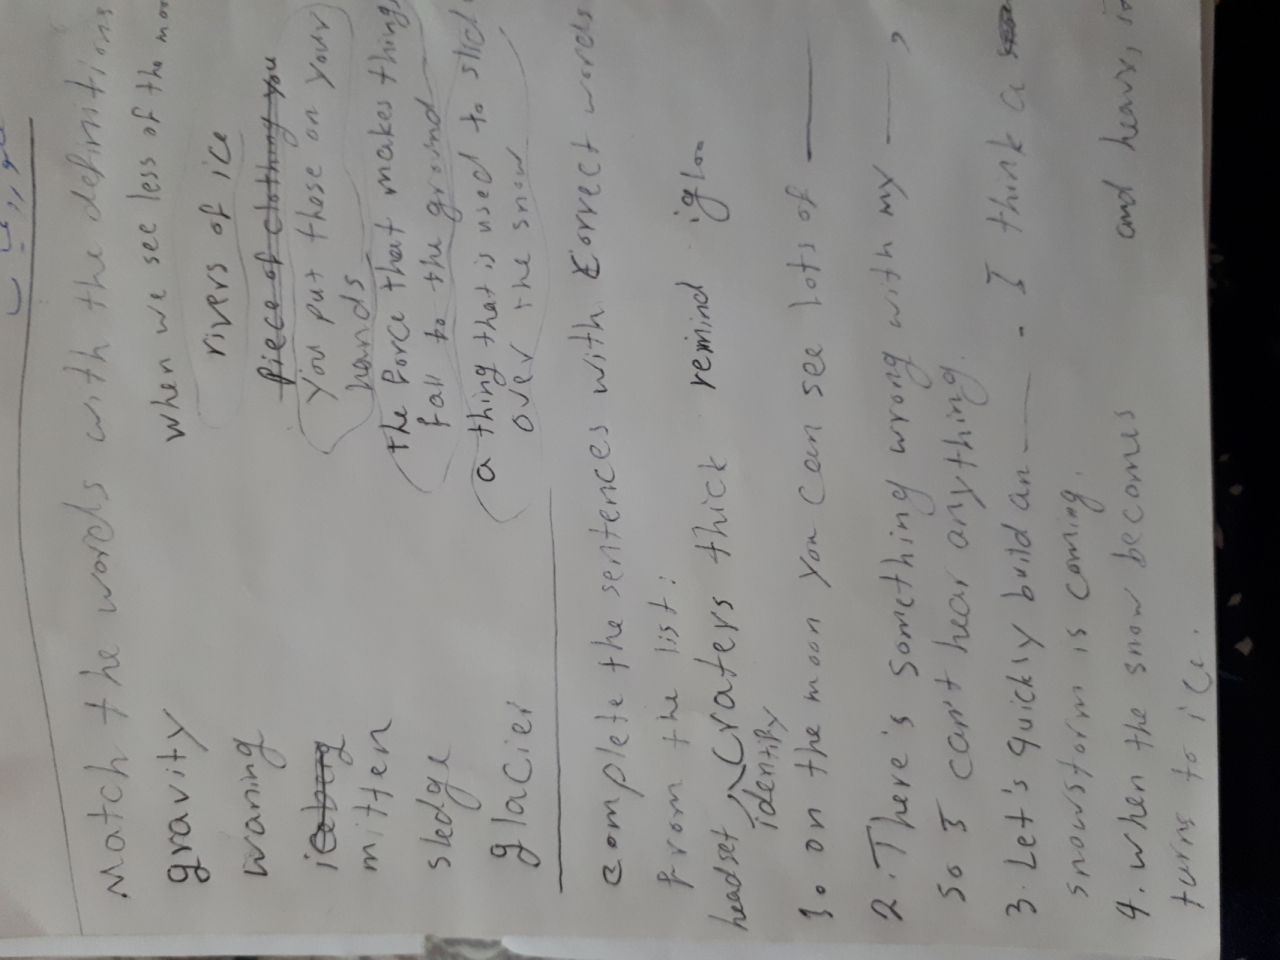 Match the words with the definitions
gravity
waning
mitten
sledge
glacier
when we see less of the
rivers of ice
piece of clothing you
you put those on your
hands
the force that makes things
fall to the ground
a thing that is used to
over the snow
Complete the sentences with correct words
from the list:
headset craters thick remind igloo
identify
1. on the moon you can see lots of
2. There's something wrong with my ,
so I can't hear anything.
3. Let's quickly build an . I think a
snowstorm is coming.
4. when the snow becomes and heavy,
turns to ice.